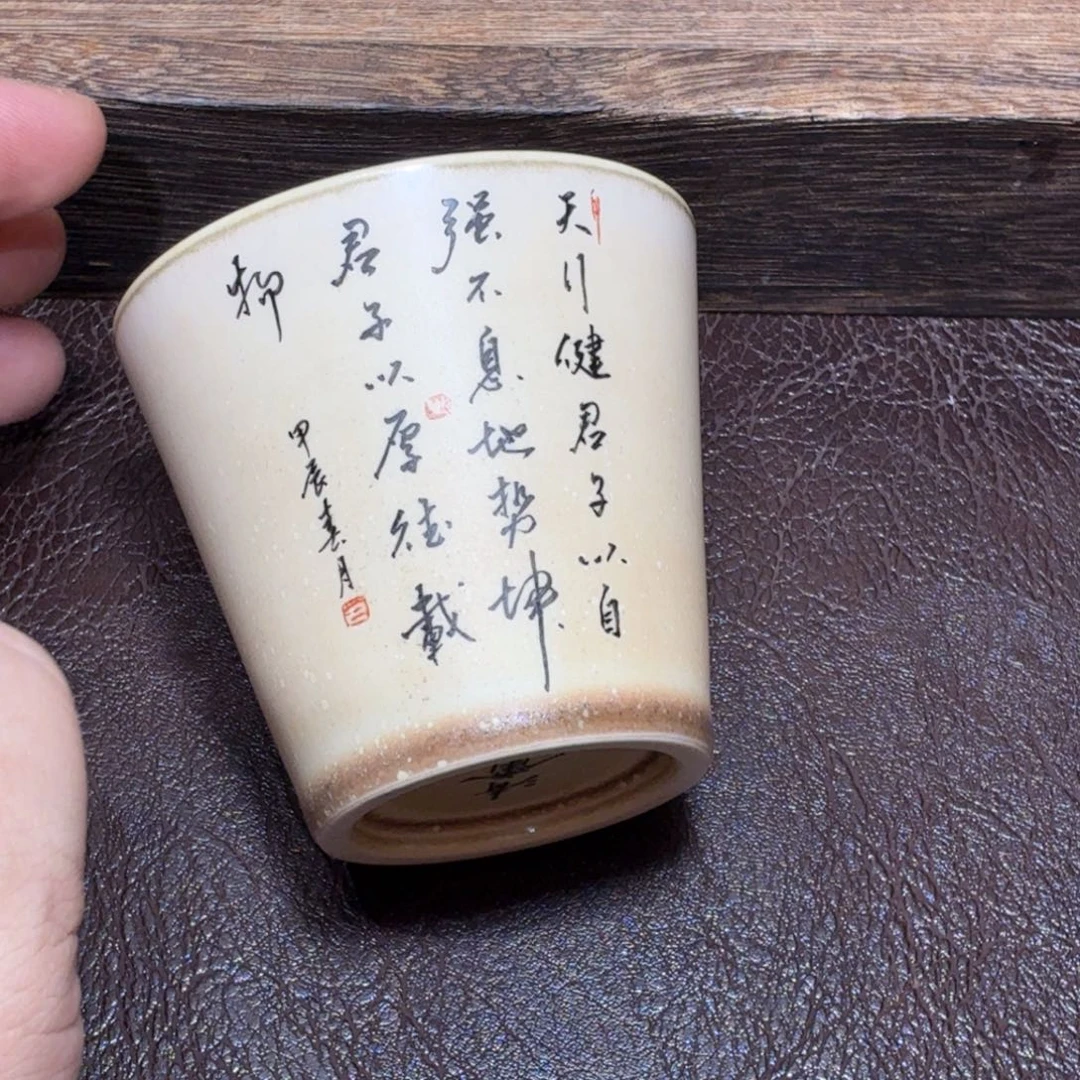 天行健君子以自
强不息地势坤
君子以厚德载
物
甲辰春月